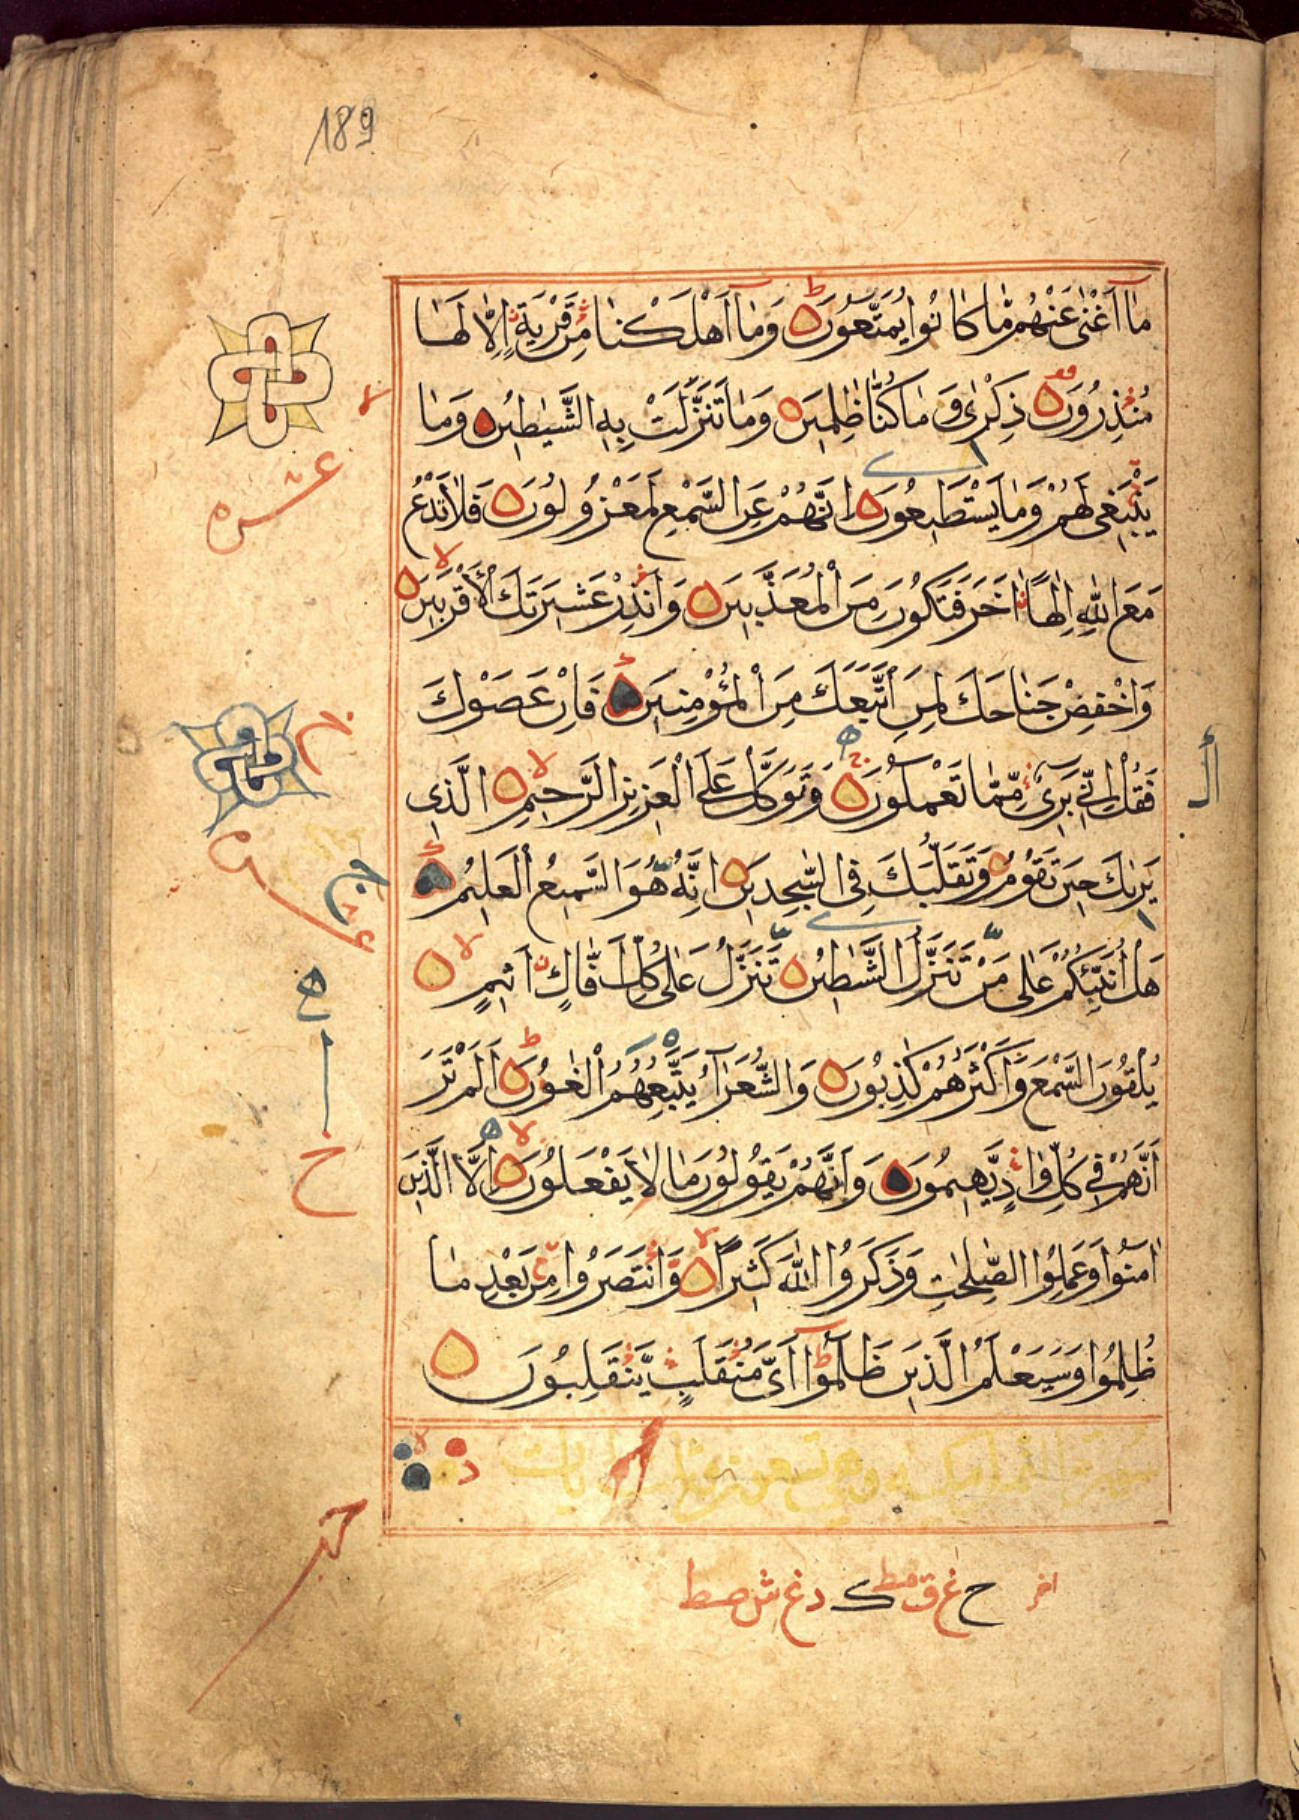 189
مَاٰ اَغْنٰى عَنْهُمْ مَّا كَانُوا يُمَتَّعُونَ وَمَاٰ اَهْلَكْنَا مِنْ قَرْيَةٍ اِلَّا لَهَا
مُنْذِرُونَ ذِكْرٰى وَمَا كُنَّا ظٰلِمِينَ وَمَا تَنَزَّلَتْ بِهِ الشَّيٰطِينُ وَمَا
يَنْبَغِى لَهُمْ وَمَا يَسْتَطِيعُونَ اِنَّهُمْ عَنِ السَّمْعِ لَمَعْزُولُونَ فَلَا تَدْعُ
مَعَ اللّٰهِ اِلٰهًا اٰخَرَ فَتَكُونَ مِنَ الْمُعَذَّبِينَ وَاَنْذِرْ عَشِيرَتَكَ الْاَقْرَبِينَ
وَاخْفِضْ جَنَاحَكَ لِمَنِ اتَّبَعَكَ مِنَ الْمُؤْمِنِينَ فَاِنْ عَصَوْكَ
فَقُلْ اِنِّى بَرِىٓءٌ مِّمَّا تَعْمَلُونَ وَتَوَكَّلْ عَلَى الْعَزِيزِ الرَّحِيمِ الَّذِى
يَرٰىكَ حِينَ تَقُومُ وَتَقَلُّبَكَ فِى السّٰجِدِينَ اِنَّهُ هُوَ السَّمِيعُ الْعَلِيمُ
هَلْ اُنَبِّئُكُمْ عَلٰى مَنْ تَنَزَّلُ الشَّيٰطِينُ تَنَزَّلُ عَلٰى كُلِّ اَفَّاكٍ اَثِيمٍ
يُلْقُونَ السَّمْعَ وَاَكْثَرُهُمْ كٰذِبُونَ وَالشُّعَرَآءُ يَتَّبِعُهُمُ الْغَاوُنَ اَلَمْ تَرَ
اَنَّهُمْ فِى كُلِّ وَادٍ يَّهِيمُونَ وَاَنَّهُمْ يَقُولُونَ مَا لَا يَفْعَلُونَ اِلَّا الَّذِينَ
اٰمَنُوا وَعَمِلُوا الصّٰلِحٰتِ وَذَكَرُوا اللّٰهَ كَثِيرًا وَّانْتَصَرُوا مِنْ بَعْدِ مَا
ظُلِمُوا وَسَيَعْلَمُ الَّذِينَ ظَلَمُوٓا اَىَّ مُنْقَلَبٍ يَّنْقَلِبُونَ
عشره
عشره